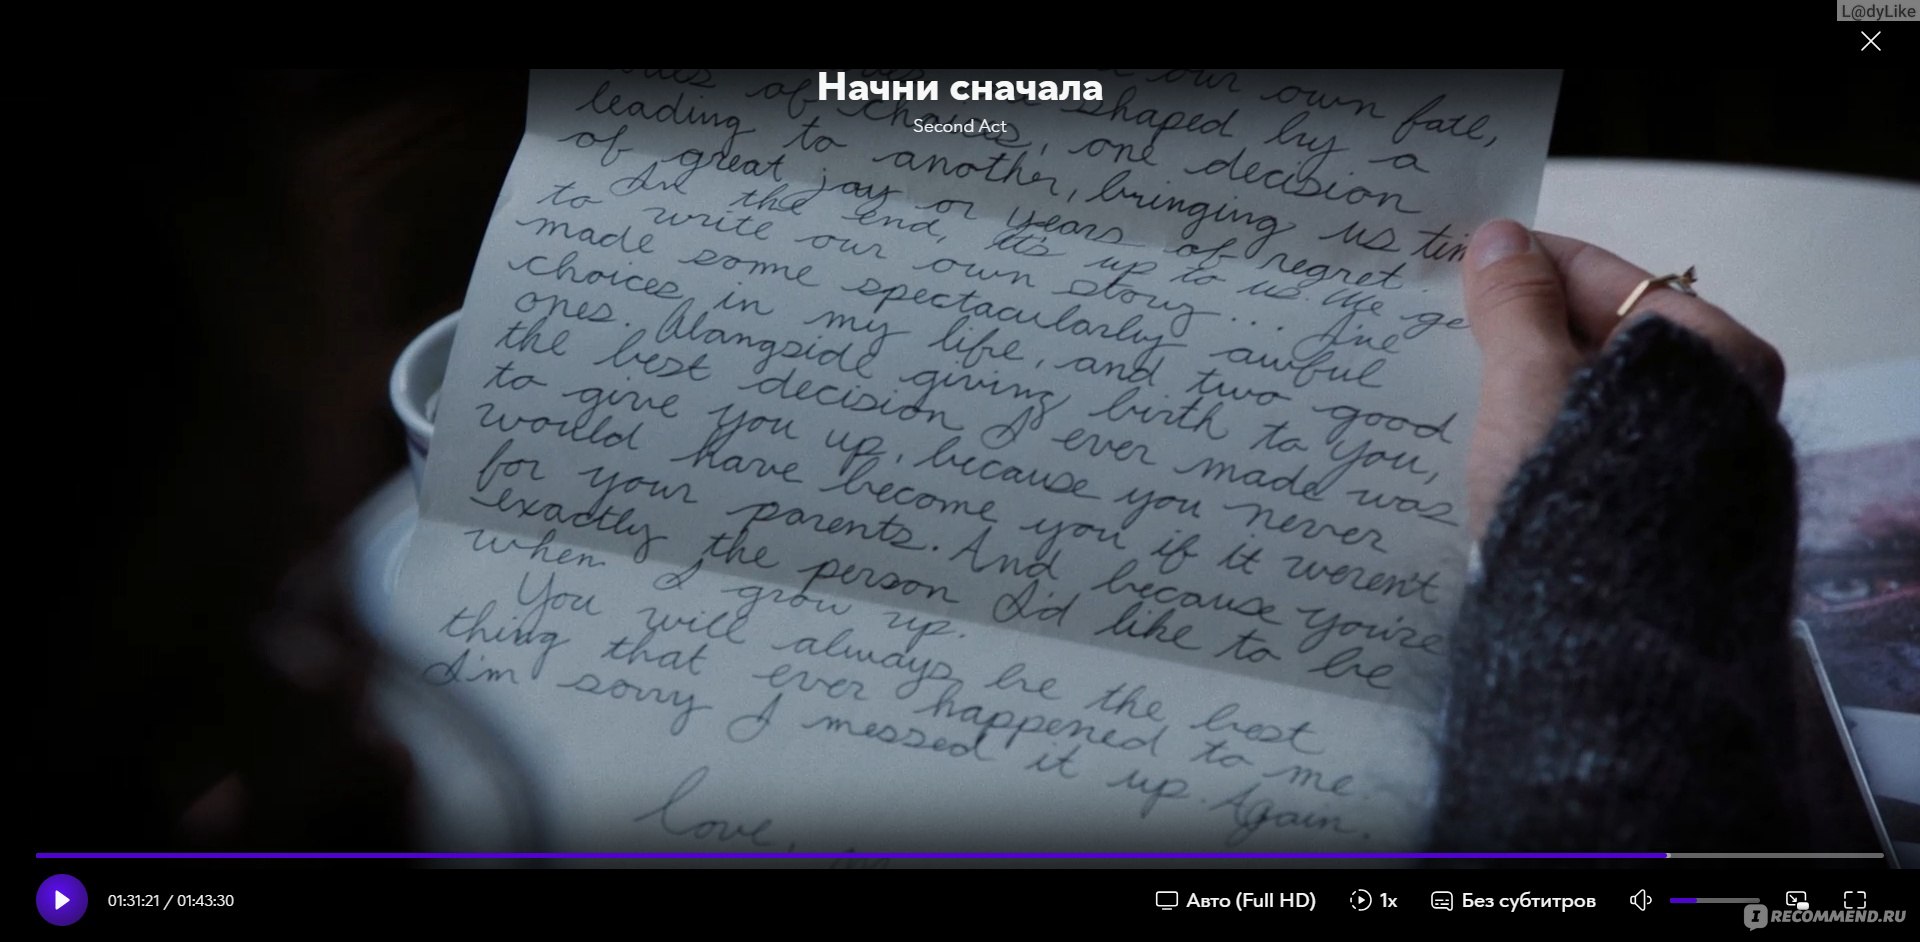 L@dyLike
Начни сначала
Second Act
our own fate,
of choices, shaped by a
leading to another, one decision
of great joy or years of regret. bringing us tim
In the end, it's up to us. We ge
to write our own story... I've
made some spectacularly awful
choices in my life, and two good
ones. Alongside giving birth to you,
the best decision I ever made was
to give you up, because you never
would have become you if it weren't
for your parents. And because you're
exactly the person I'd like to be
when I grow up.
You will always be the best
thing that ever happened to me.
I'm sorry I messed it up. Again.
Love,
01:31:21 / 01:43:30
Авто (Full HD)
1x
Без субтитров
IRECOMMEND.RU